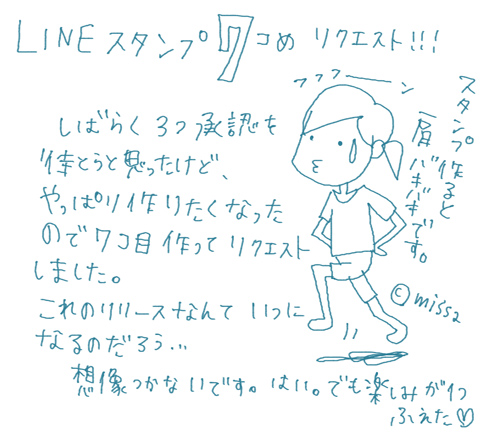 LINEスタンプ7コめ リクエスト!!!
フラフラ〜ン
スタンプ作ると
肩バキバキです。
しばらく3つ承認を
待とうと思ったけど、
やっぱり作りたくなった
ので7コ目作ってリクエスト
しました。
これのリリースなんていつに
なるのだろう…
©miss2
想像つかないです。はい。でも楽しみが1つ
ふえた♡